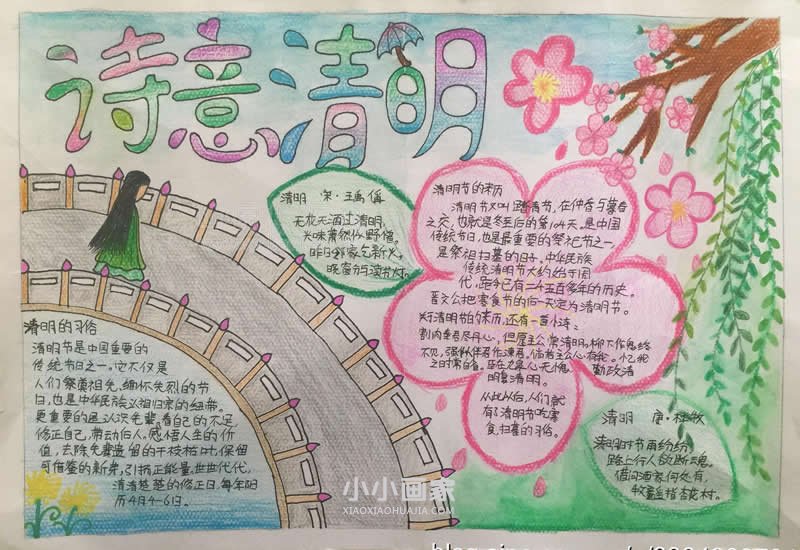 诗意清明
清明 宋·王禹偁
无花无酒过清明,
兴味萧然似野僧。
昨日邻家乞新火,
晓窗分与读书灯。
清明节的来历
清明节又叫踏青节,在仲春与暮春
之交,也就是冬至后的第104天。是中国
传统节日,也是最重要的祭祀节之一,
是祭祖扫墓的日子。中华民族
传统清明节大约始于周
代,距今已有二千五百多年的历史。
晋文公把寒食节的后一天定为清明节。
对清明节的来历,还有一首小诗:
割肉奉君尽丹心,但愿主公常清明。柳下作鬼终
不见,强似伴君作谏臣。倘若主公心有我,忆我
之时常自省。臣在九泉心无愧,勤政清
明复清明。
从此以后,人们就
有了清明节吃寒
食,扫墓的习俗。
清明的习俗
清明节是中国重要的
传统节日之一。它不仅是
人们祭奠祖先,缅怀先烈的节
日,也是中华民族认祖归宗的纽带。
更重要的是认识先辈,看自己的不足
修正自己,带动后人。感悟人生的价
值,去除先辈遗留的干枝枯叶,保留
可借鉴的新芽,引拓正能量,世世代代,
清清楚楚的修正日,每年阳
历4月4-6日。
清明 唐·杜牧
清明时节雨纷纷,
路上行人欲断魂。
借问酒家何处有,
牧童遥指杏花村。
小小画家
XIAOXIAOHUAJIA.COM